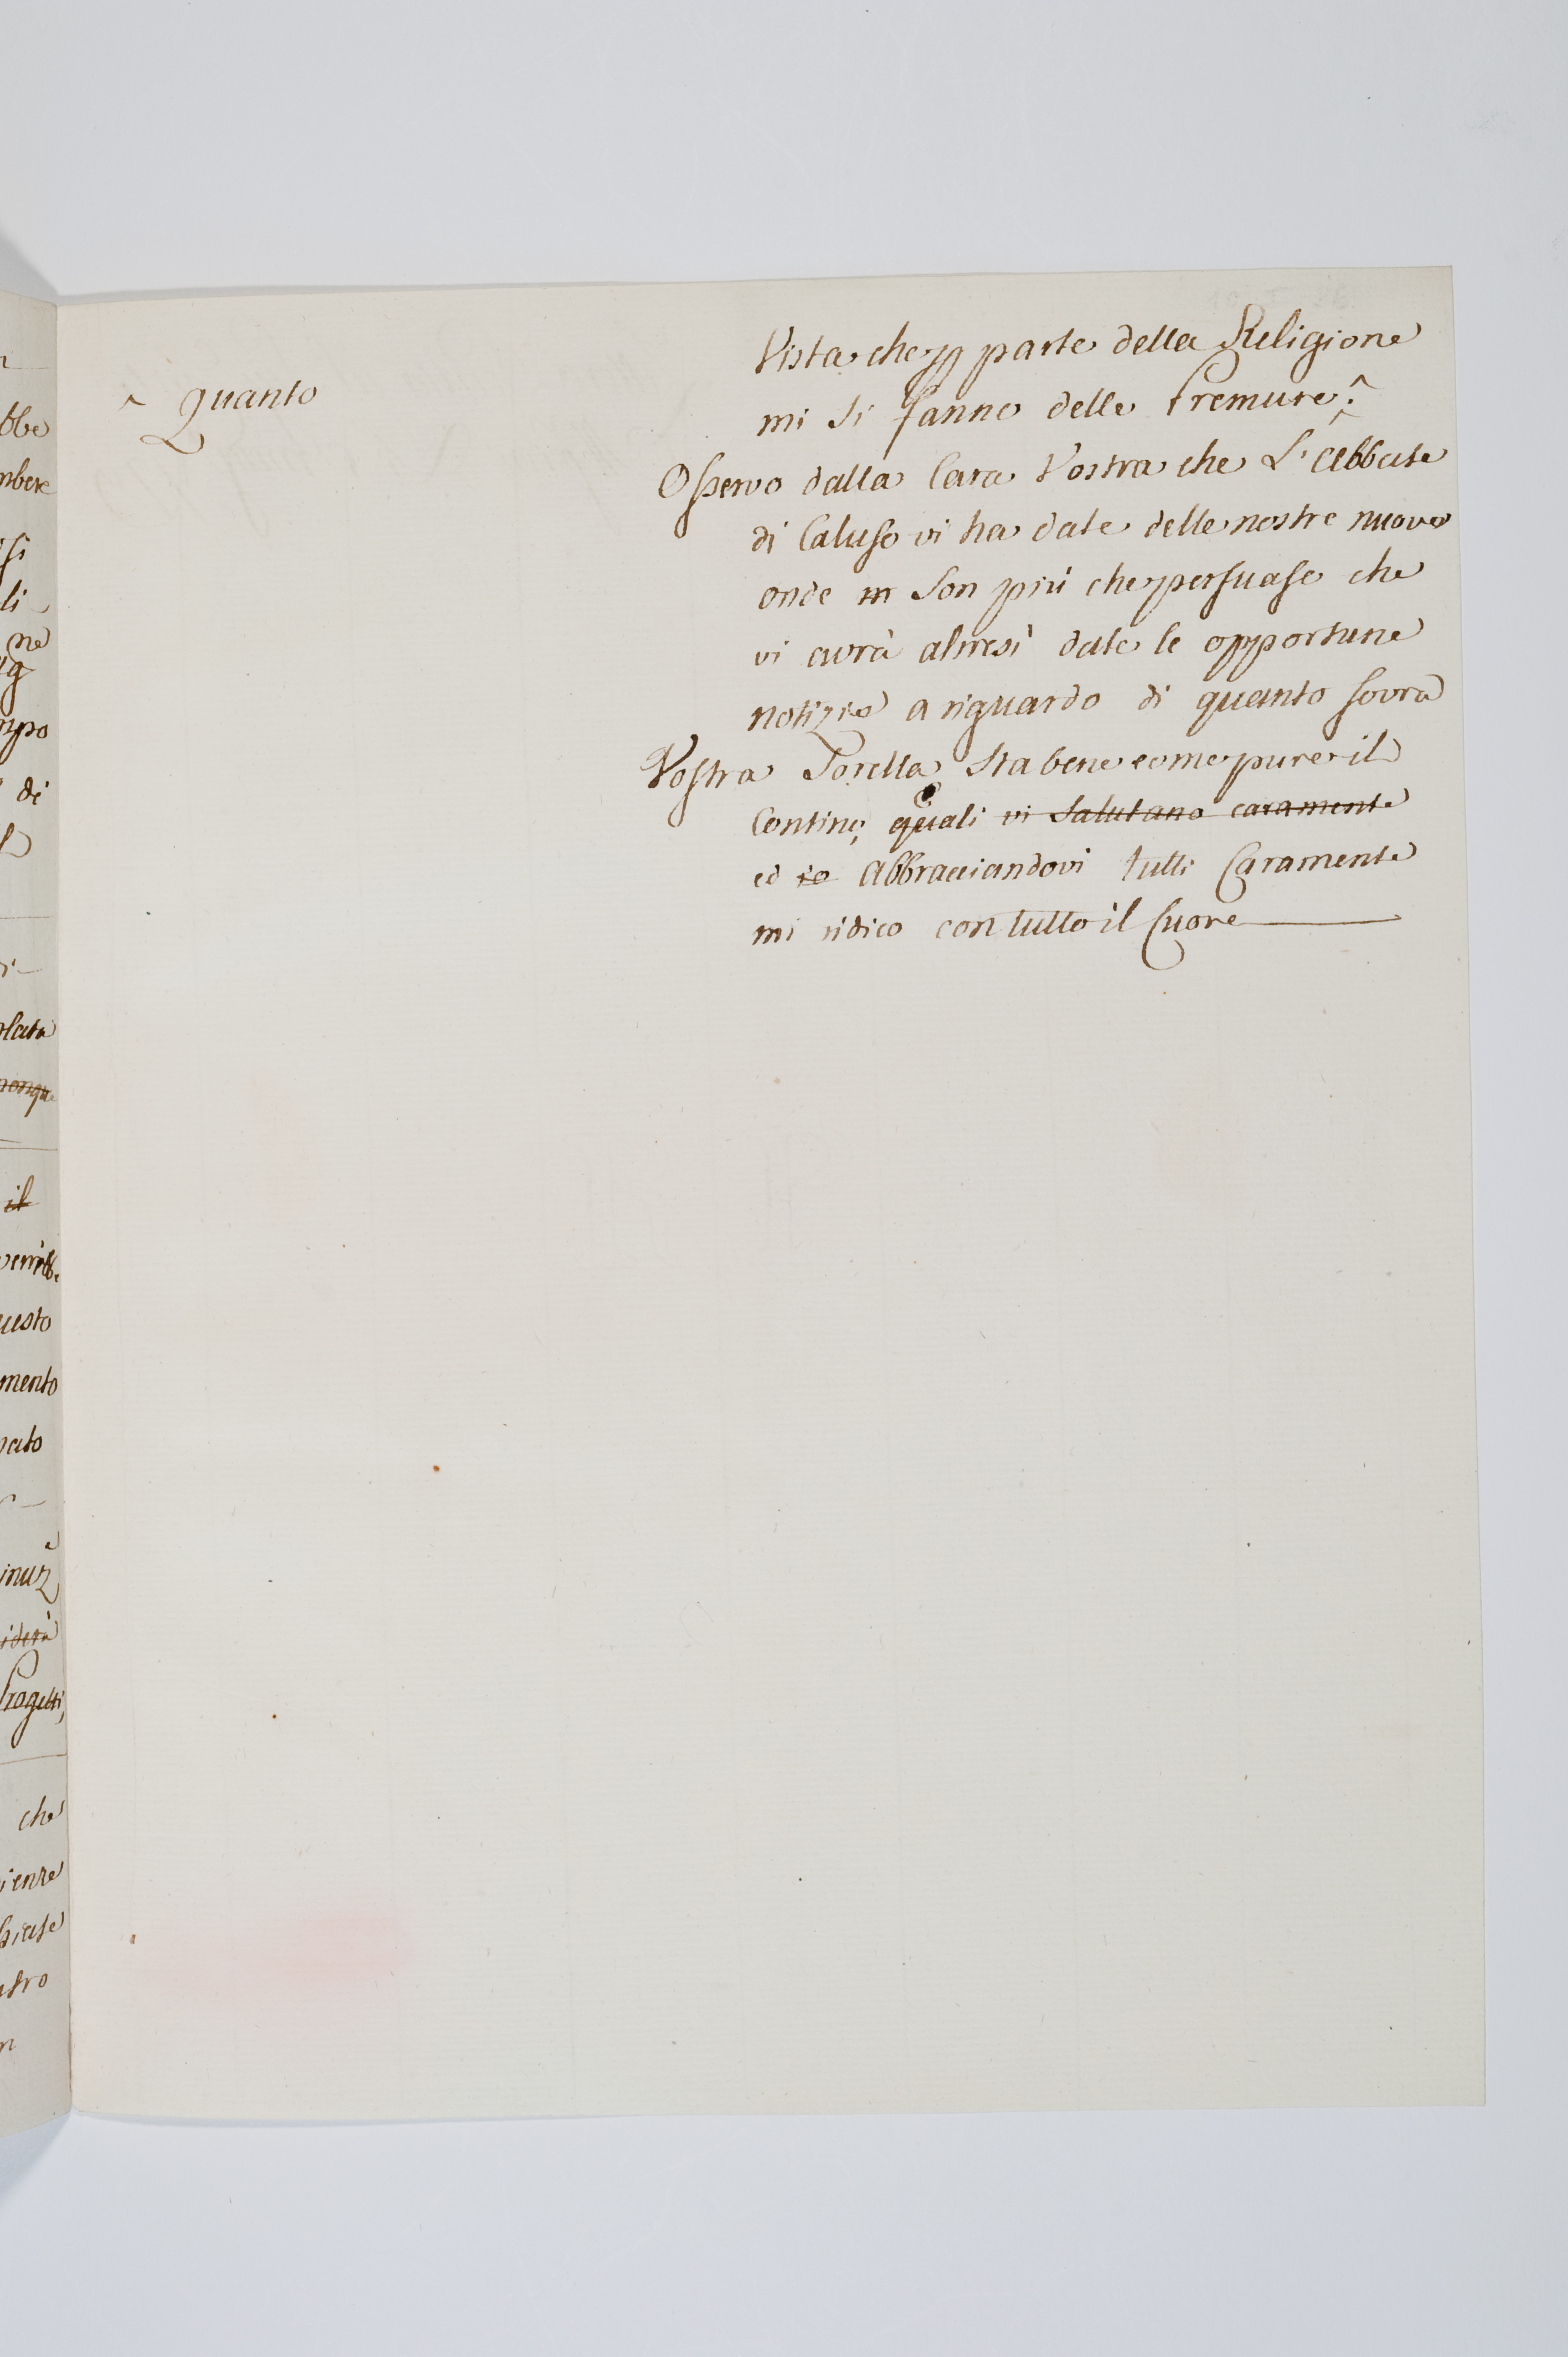 ^ quanto
Vista che p parte della Religione
mi si fanno delle Premure.^
Osservo dalla Cara Vostra che L'Abbate
di Caluso vi ha date delle nostre nuove
onde m son più che persuaso che
vi avrà altresì date le opportune
notizie a riguardo di quanto sovra
Vostra Sorella sta bene come pure il
Contino, quali vi salutano caramente
ed io Abbracciandovi tutti Caramente
mi ridico con tutto il Cuore
bbe
mbere
si
li
ne
mpo
di
lata
nonqu
il
verrebbe
uesto
mento
pato
iderà
Progetti,
che
ienze
stro